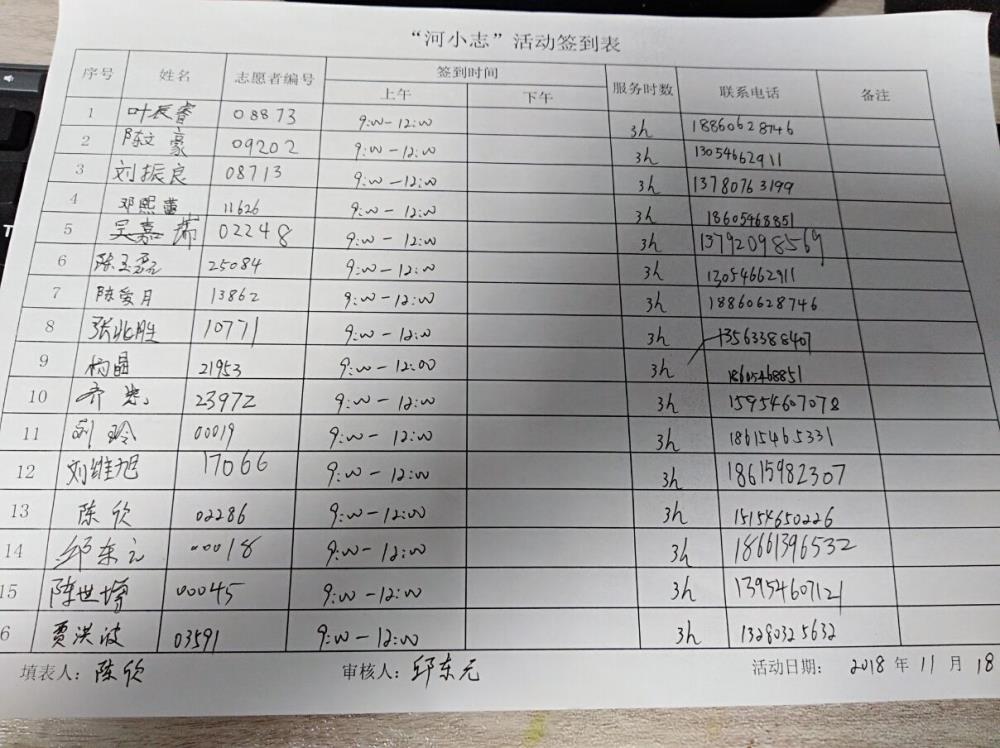 “河小志”活动签到表
序号 姓名 志愿者编号 签到时间 服务时数 联系电话 备注
上午 下午
1 叶辰睿 08873 9:00-12:00 3h 18860628746
2 陈文豪 09202 9:00-12:00 3h 13054662911
3 刘振良 08713 9:00-12:00 3h 13780763199
4 邓熙蕾 11626 9:00-12:00 3h 18605468851
5 吴嘉 02248 9:00-12:00 3h 13792098569
6 陈玉磊 25084 9:00-12:00 3h 13054662911
7 陈爱月 13862 9:00-12:00 3h 18860628746
8 张兆胜 10771 9:00-12:00 3h 13563388407
9 杨晶 21953 9:00-12:00 3h 18605468851
10 齐 23972 9:00-12:00 3h 15954607078
11 刘玲 00019 9:00-12:00 3h 18615465331
12 刘维旭 17066 9:00-12:00 3h 18615982307
13 陈欣 02286 9:00-12:00 3h 15154650226
14 邱东元 00018 9:00-12:00 3h 18661396532
15 陈世增 00045 9:00-12:00 3h 13954607121
6 贾洪波 03591 9:00-12:00 3h 13280325632
填表人:陈欣 审核人:邱东元 活动日期: 2018年11月18